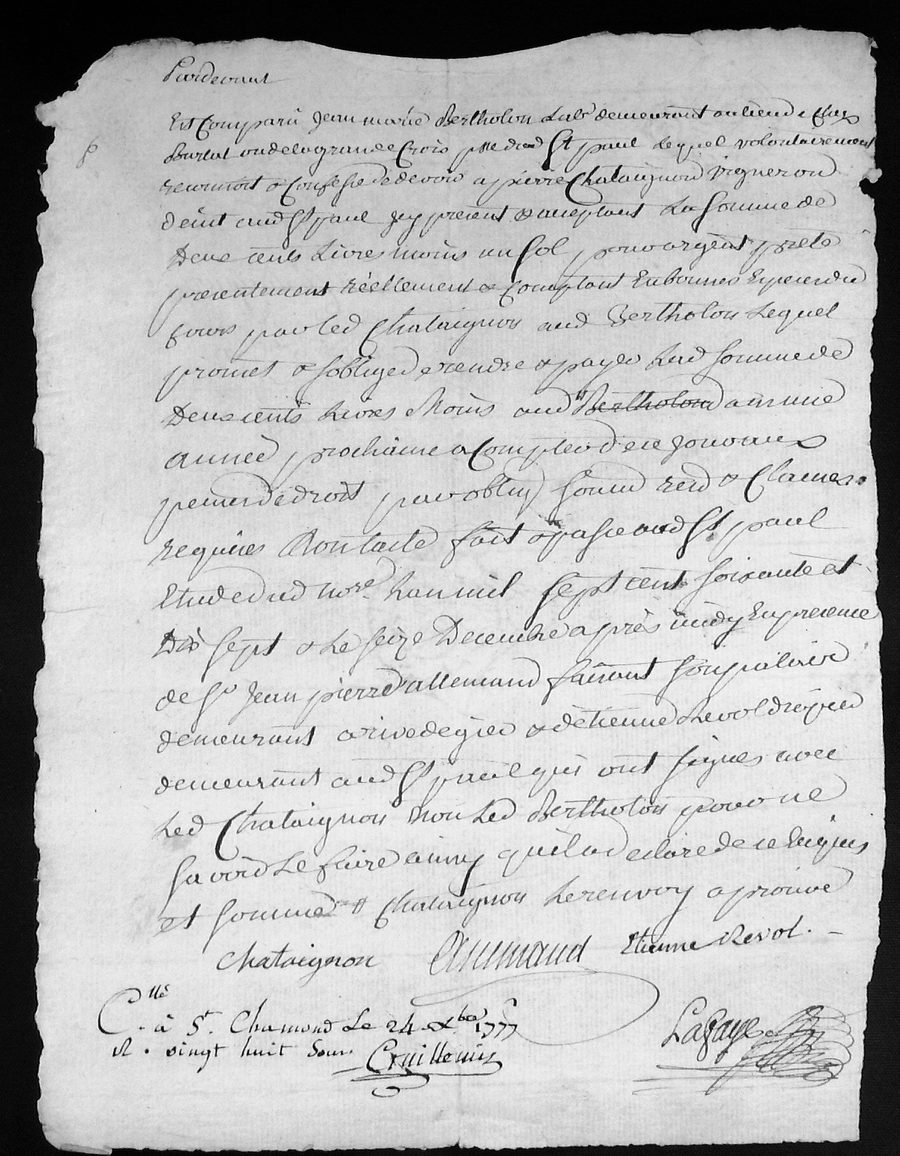 Pardevant
Est Comparu Jean marie Bertholon Labr demeurant au lieu de
Burlat ou de la grande Croix psse dud St paul Lequel volontairement
reconnoit & Confesse de devoir a pierre Chataignon Vigneron
dem.t aud St paul Jcy present & acceptant La Somme de
Deux cents Livres moins un Sol pour argent prêté
presentement réellement & Comptant En bonnes Especes du
Cours par led Chataignon aud Bertholon Lequel
promet & soblige de rendre & payer Lad Somme de
Deux cents Livres Moins aud Bertholon a
année prochaine a Compter de ce jour aux
peines de droit par oblig Soumis ren & Clauses
requises Dont acte fait & passé aud St paul
Etude dud nore Lan mil Sept cent soixante et
Dix Sept & Le Seize Decembre après midy En presence
de Sr Jean pierre allemand
demeurant a rivedegier & detienne Revol
demeurant aud St paul qui ont signés avec
Led Chataignon non Led Bertholon pour ne
Savoir Le faire ainsy quil a declaré de ce Enquis
et Sommé & Chataignon Le renvoy aprouvé
Chataignon Allemand Etienne Revol.
C.llé à St. Chamond Le 24 Xbre 1777
R. vingt huit Sous
Lafaye